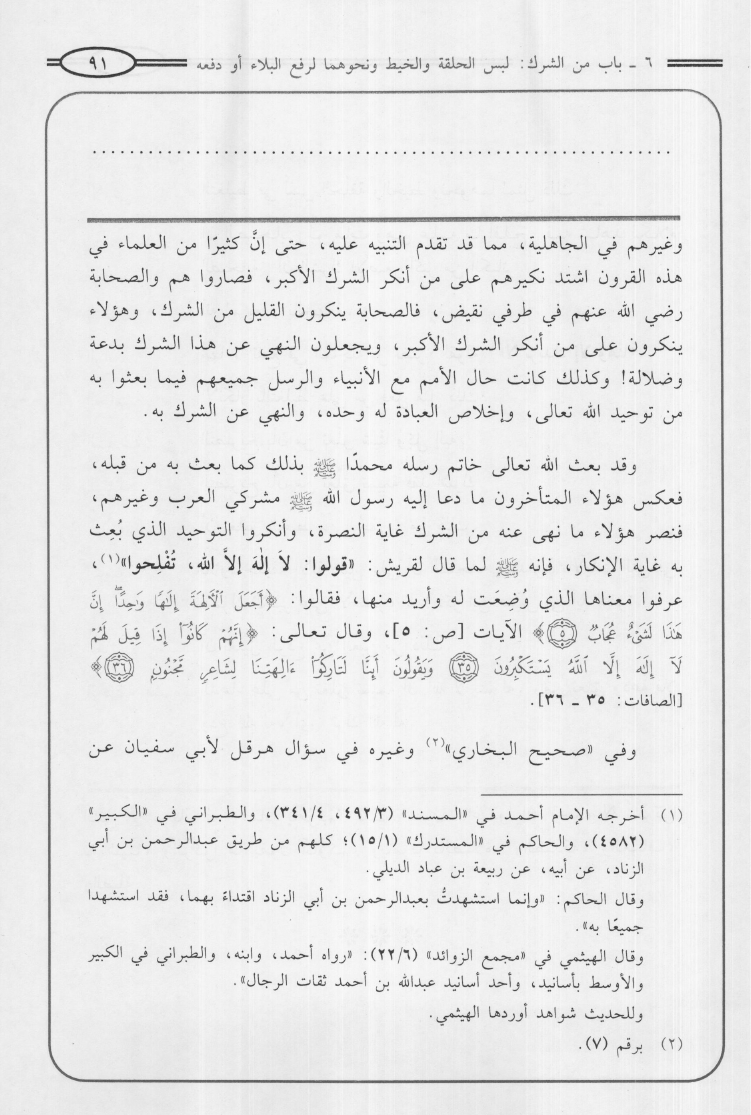 ٦ ـ باب من الشرك: لبس الحلقة والخيط ونحوهما لرفع البلاء أو دفعه
٩١
وغيرهم في الجاهلية، مما قد تقدم التنبيه عليه، حتى إنَّ كثيرًا من العلماء في
هذه القرون اشتد نكيرهم على من أنكر الشرك الأكبر، فصاروا هم والصحابة
رضي الله عنهم في طرفي نقيض، فالصحابة ينكرون القليل من الشرك، وهؤلاء
ينكرون على من أنكر الشرك الأكبر، ويجعلون النهي عن هذا الشرك بدعة
وضلالة! وكذلك كانت حال الأمم مع الأنبياء والرسل جميعهم فيما بعثوا به
من توحيد الله تعالى، وإخلاص العبادة له وحده، والنهي عن الشرك به.
وقد بعث الله تعالى خاتم رسله محمدًا ﷺ بذلك كما بعث به من قبله،
فعكس هؤلاء المتأخرون ما دعا إليه رسول الله ﷺ مشركي العرب وغيرهم،
فنصر هؤلاء ما نهى عنه من الشرك غاية النصرة، وأنكروا التوحيد الذي بُعِث
به غاية الإنكار، فإنه ﷺ لما قال لقريش: «قولوا: لاَ إلٰهَ إلاَّ الله، تُفْلِحوا»(١)،
عرفوا معناها الذي وُضِعَت له وأريد منها، فقالوا: ﴿أَجَعَلَ ٱلْآلِهَةَ إِلَٰهًا وَٰحِدًا ۖ إِنَّ
هَٰذَا لَشَىْءٌ عُجَابٌ ۝٥﴾ الآيات [ص: ٥]، وقال تعالى: ﴿إِنَّهُمْ كَانُوٓا۟ إِذَا قِيلَ لَهُمْ
لَآ إِلَٰهَ إِلَّا ٱللَّهُ يَسْتَكْبِرُونَ ۝٣٥ وَيَقُولُونَ أَئِنَّا لَتَارِكُوٓا۟ ءَالِهَتِنَا لِشَاعِرٍ مَّجْنُونٍ ۝٣٦﴾
[الصافات: ٣٥ ـ ٣٦].
وفي «صحيح البخاري»(٢) وغيره في سؤال هرقل لأبي سفيان عن
(١) أخرجه الإمام أحمد في «المسند» (٤٩٢/٣، ٣٤١/٤)، والطبراني في «الكبير»
(٤٥٨٢)، والحاكم في «المستدرك» (١٥/١)؛ كلهم من طريق عبدالرحمن بن أبي
الزناد، عن أبيه، عن ربيعة بن عباد الديلي.
وقال الحاكم: «وإنما استشهدتُ بعبدالرحمن بن أبي الزناد اقتداءً بهما، فقد استشهدا
جميعًا به».
وقال الهيثمي في «مجمع الزوائد» (٢٢/٦): «رواه أحمد، وابنه، والطبراني في الكبير
والأوسط بأسانيد، وأحد أسانيد عبدالله بن أحمد ثقات الرجال».
وللحديث شواهد أوردها الهيثمي.
(٢) برقم (٧).